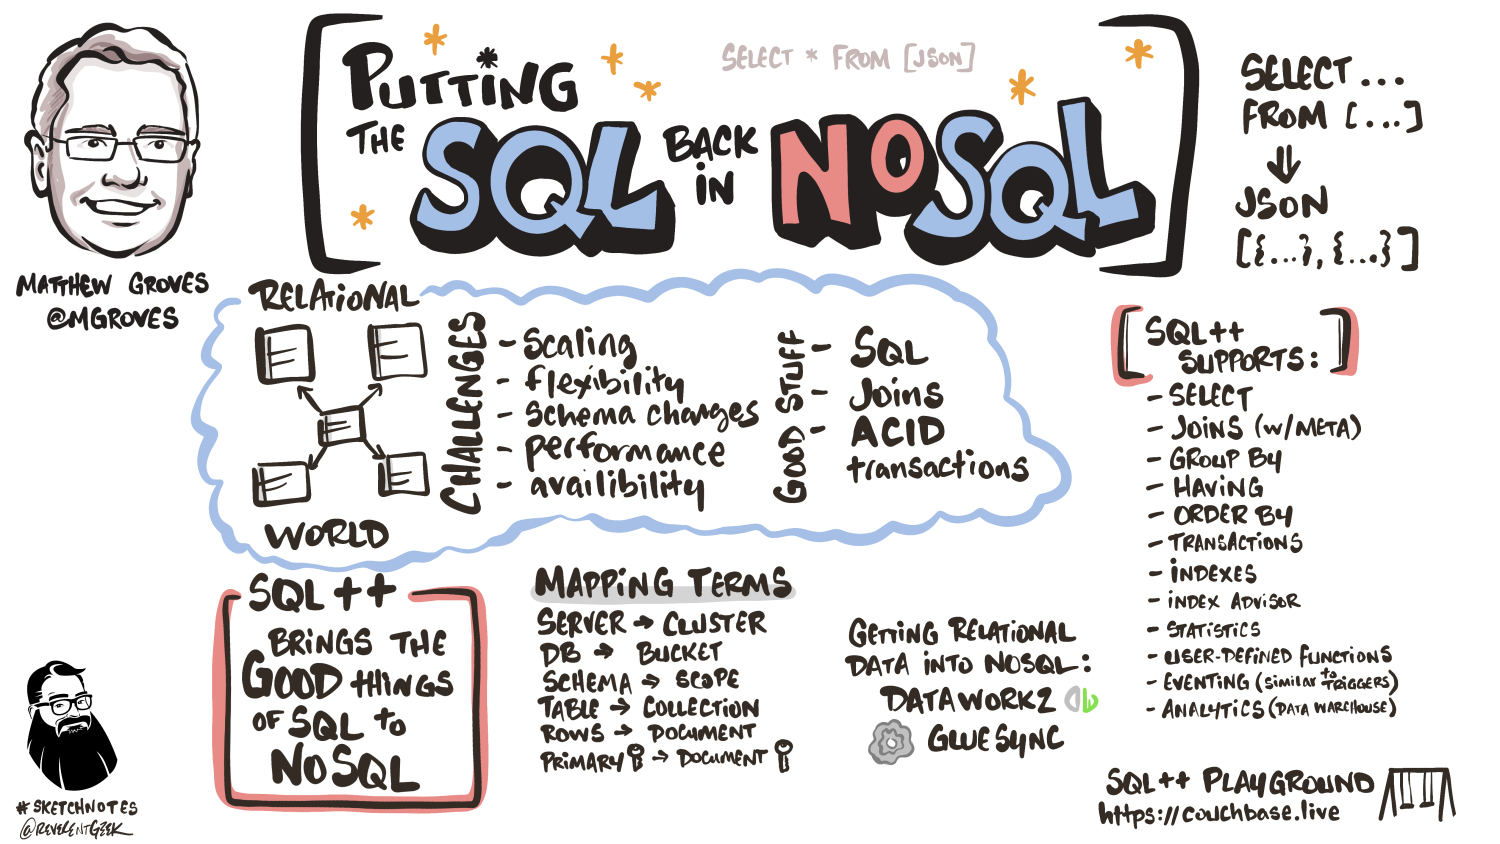 PUTTING
THE SQL BACK
IN NOSQL
SELECT * FROM [JSON]
SELECT ...
FROM [...]
JSON
[{...}, {...}]
MATTHEW GROVES
@MGROVES
RELATIONAL
WORLD
CHALLENGES
- Scaling
- flexibility
- schema changes
- performance
- availibility
GOOD STUFF
- SQL
- Joins
- ACID
transactions
SQL++
SUPPORTS:
- SELECT
- JOINS (w/META)
- GROUP BY
- HAVING
- ORDER BY
- TRANSACTIONS
- INDEXES
- INDEX ADVISOR
- STATISTICS
- USER-DEFINED FUNCTIONS
- EVENTING (SIMILAR TO TRIGGERS)
- ANALYTICS (DATA WAREHOUSE)
SQL++
BRINGS THE
GOOD THINGS
OF SQL to
NOSQL
MAPPING TERMS
SERVER → CLUSTER
DB → BUCKET
SCHEMA → SCOPE
TABLE → COLLECTION
ROWS → DOCUMENT
PRIMARY → DOCUMENT
GETTING RELATIONAL
DATA INTO NOSQL:
DATAWORKZ
GLUESYNC
SQL++ PLAYGROUND
https://couchbase.live
#SKETCHNOTES
@REVERENTGEEK